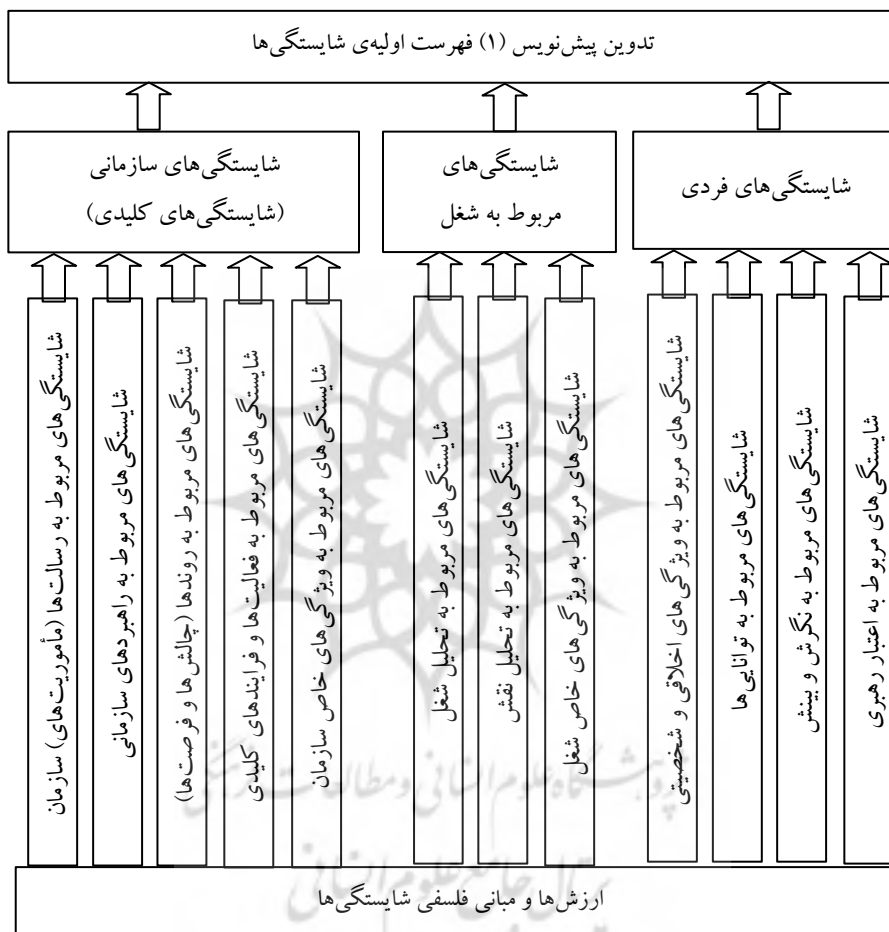 تدوین پیش‌نویس (۱) فهرست اولیه‌ی شایستگی‌ها
شایستگی‌های فردی
شایستگی‌های
مربوط به شغل
شایستگی‌های سازمانی
(شایستگی‌های کلیدی)
شایستگی‌های مربوط به اعتبار رهبری
شایستگی‌های مربوط به نگرش و بینش
شایستگی‌های مربوط به توانایی‌ها
شایستگی‌های مربوط به ویژگی‌های اخلاقی و شخصیتی
شایستگی‌های مربوط به ویژگی‌های خاص شغل
شایستگی‌های مربوط به تحلیل نقش
شایستگی‌های مربوط به تحلیل شغل
شایستگی‌های مربوط به ویژگی‌های خاص سازمان
شایستگی‌های مربوط به فعالیت‌ها و فرایندهای کلیدی
شایستگی‌های مربوط به روندها (چالش‌ها و فرصت‌ها)
شایستگی‌های مربوط به راهبردهای سازمانی
شایستگی‌های مربوط به رسالت‌ها (مأموریت‌های) سازمان
پژوهشگاه علوم انسانی و مطالعات فرهنگی
پرتال جامع علوم انسانی
ارزش‌ها و مبانی فلسفی شایستگی‌ها